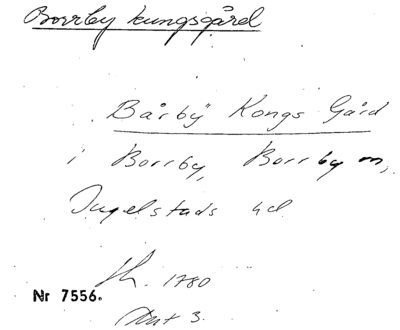 Borrby kungsgård
Bårbÿ Kongs Gård
i Borrby, Borrby sn,
Ingelstads hd
1780
Nr 7556.
Ant 3.